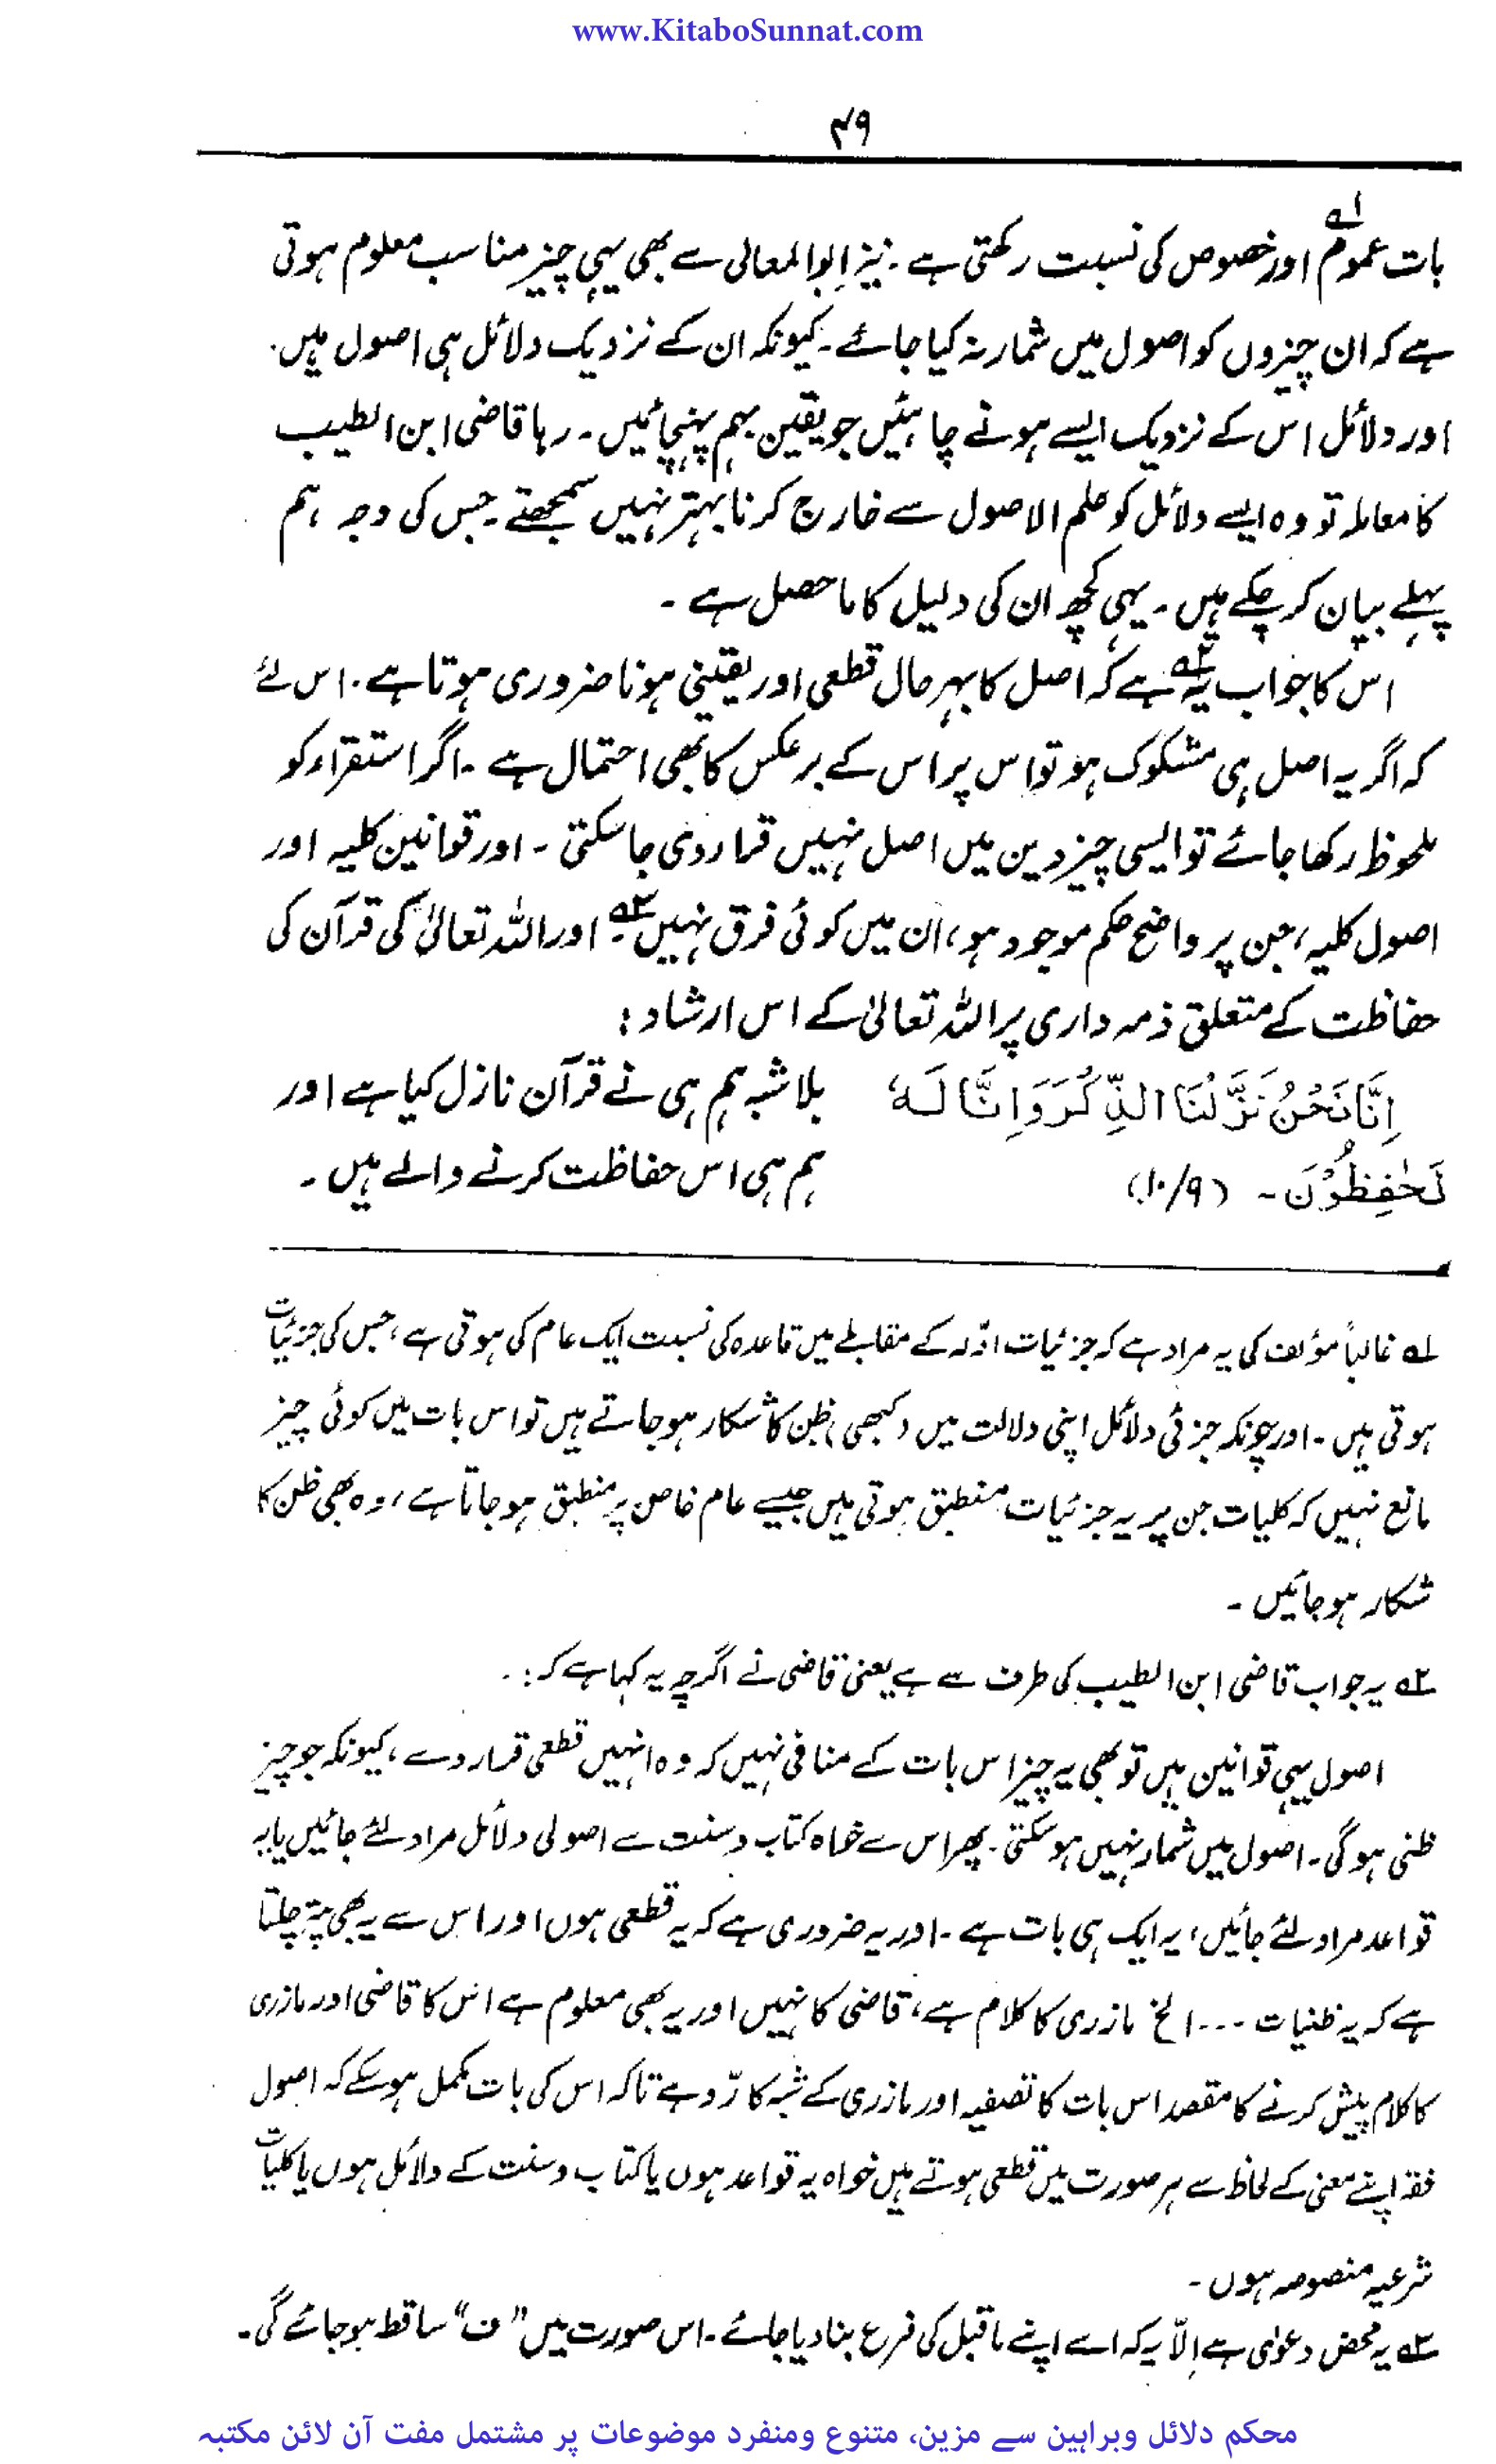 www.KitaboSunnat.com
۴۹
بات عموم۱ اور خصوص کی نسبت رکھتی ہے ۔ نیز ابوالمعالی سے بھی یہی چیز مناسب معلوم ہوتی
ہے کہ ان چیزوں کو اصول میں شمار نہ کیا جائے ۔ کیونکہ ان کے نزدیک دلائل ہی اصول ہیں ۔
اور دلائل اس کے نزدیک ایسے ہونے چاہئیں جو یقین بہم پہنچائیں ۔ رہا قاضی ابن الطیب
کا معاملہ تو وہ ایسے دلائل کو علم الاصول سے خارج کرنا بہتر نہیں سمجھتے ۔ جس کی وجہ ہم
پہلے بیان کر چکے ہیں ۔ یہی کچھ ان کی دلیل کا ماحصل ہے ۔
اس کا جواب یہ۲ ہے کہ اصل کا بہرحال قطعی اور یقینی ہونا ضروری ہوتا ہے ۔ اس لئے
کہ اگر یہ اصل ہی مشکوک ہو تو اس پر اس کے برعکس کا بھی احتمال ہے ۔ اگر استقراء کو
ملحوظ رکھا جائے تو ایسی چیز دین میں اصل نہیں قرار دی جا سکتی ۔ اور قوانین کلیہ اور
اصول کلیہ، جن پر واضح حکم موجود ہو، ان میں کوئی فرق نہیں۳ ۔ اور اللہ تعالیٰ کی قرآن کی
حفاظت کے متعلق ذمہ داری پر اللہ تعالیٰ کے اس ارشاد :
اِنَّا نَحْنُ نَزَّلْنَا الذِّكْرَ وَاِنَّا لَهٗ بلاشبہ ہم ہی نے قرآن نازل کیا ہے اور
لَحٰفِظُوْنَ ۔ (۱۰/۹) ہم ہی اس حفاظت کرنے والے ہیں ۔
۱ غالباً مؤلف کی یہ مراد ہے کہ جزئیات ادلّہ کے مقابلے میں قاعدہ کی نسبت ایک عام کی ہوتی ہے، جس کی جزئیات
ہوتی ہیں ۔ اور چونکہ جزئی دلائل اپنی دلالت میں (کبھی) ظن کا شکار ہو جاتے ہیں تو اس بات میں کوئی چیز
مانع نہیں کہ کلیات جن پر یہ جزئیات منطبق ہوتی ہیں جیسے عام خاص پر منطبق ہو جاتا ہے، وہ بھی ظن کا
شکار ہو جائیں ۔
۲ یہ جواب قاضی ابن الطیب کی طرف سے ہے یعنی قاضی نے اگرچہ یہ کہا ہے کہ :
اصول یہی قوانین ہیں تو بھی یہ چیز اس بات کے منافی نہیں کہ وہ انہیں قطعی قرار دے، کیونکہ جو چیز
ظنی ہوگی ۔ اصول میں شمار نہیں ہو سکتی ۔ پھر اس سے خواہ کتاب و سنت سے اصولی دلائل مراد لئے جائیں یا یہ
قواعد مراد لئے جائیں، یہ ایک ہی بات ہے ۔ اور یہ ضروری ہے کہ یہ قطعی ہوں اور اس سے یہ بھی پتہ چلتا
ہے کہ یہ ظنیات ۔۔۔ الخ مازری کا کلام ہے، قاضی کا نہیں اور یہ بھی معلوم ہے اس کا قاضی اور مازری
کا کلام پیش کرنے کا مقصد اس بات کا تصفیہ اور مازری کے شبہ کا ردّ ہے تاکہ اس کی بات مکمل ہو سکے کہ اصول
فقہ اپنے معنی کے لحاظ سے ہر صورت میں قطعی ہوتے ہیں خواہ یہ قواعد ہوں یا کتاب و سنت کے دلائل ہوں یا کلیات
شرعیہ منصوصہ ہوں ۔
۳ یہ محض دعوٰی ہے اِلّا یہ کہ اسے اپنے ماقبل کی فرع بنا دیا جائے ۔ اس صورت میں "ف" ساقط ہو جائے گی ۔
محکم دلائل وبراہین سے مزین، متنوع ومنفرد موضوعات پر مشتمل مفت آن لائن مکتبہ